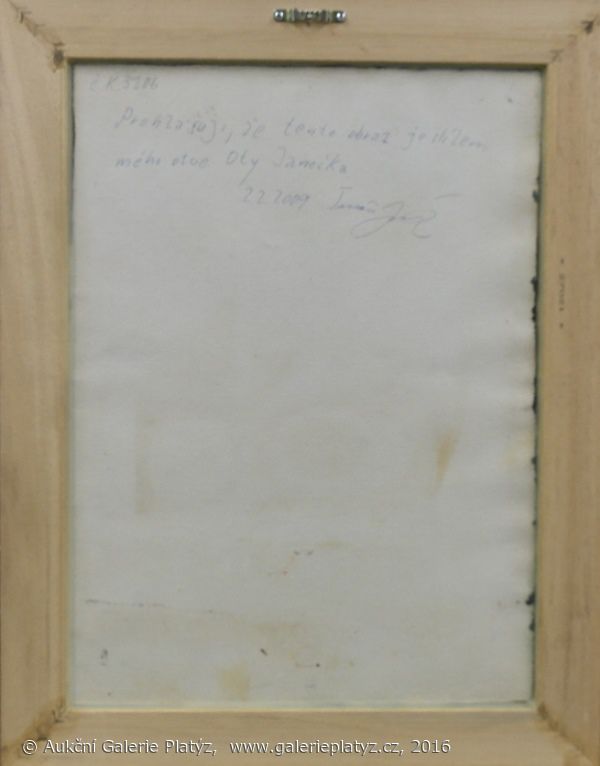 č.K 3206
Prohlašuji, že tento obraz je dílem
mého otce Oty Janečka
2.2.2009 Tomáš
© Aukční Galerie Platýz, www.galerieplatyz.cz, 2016